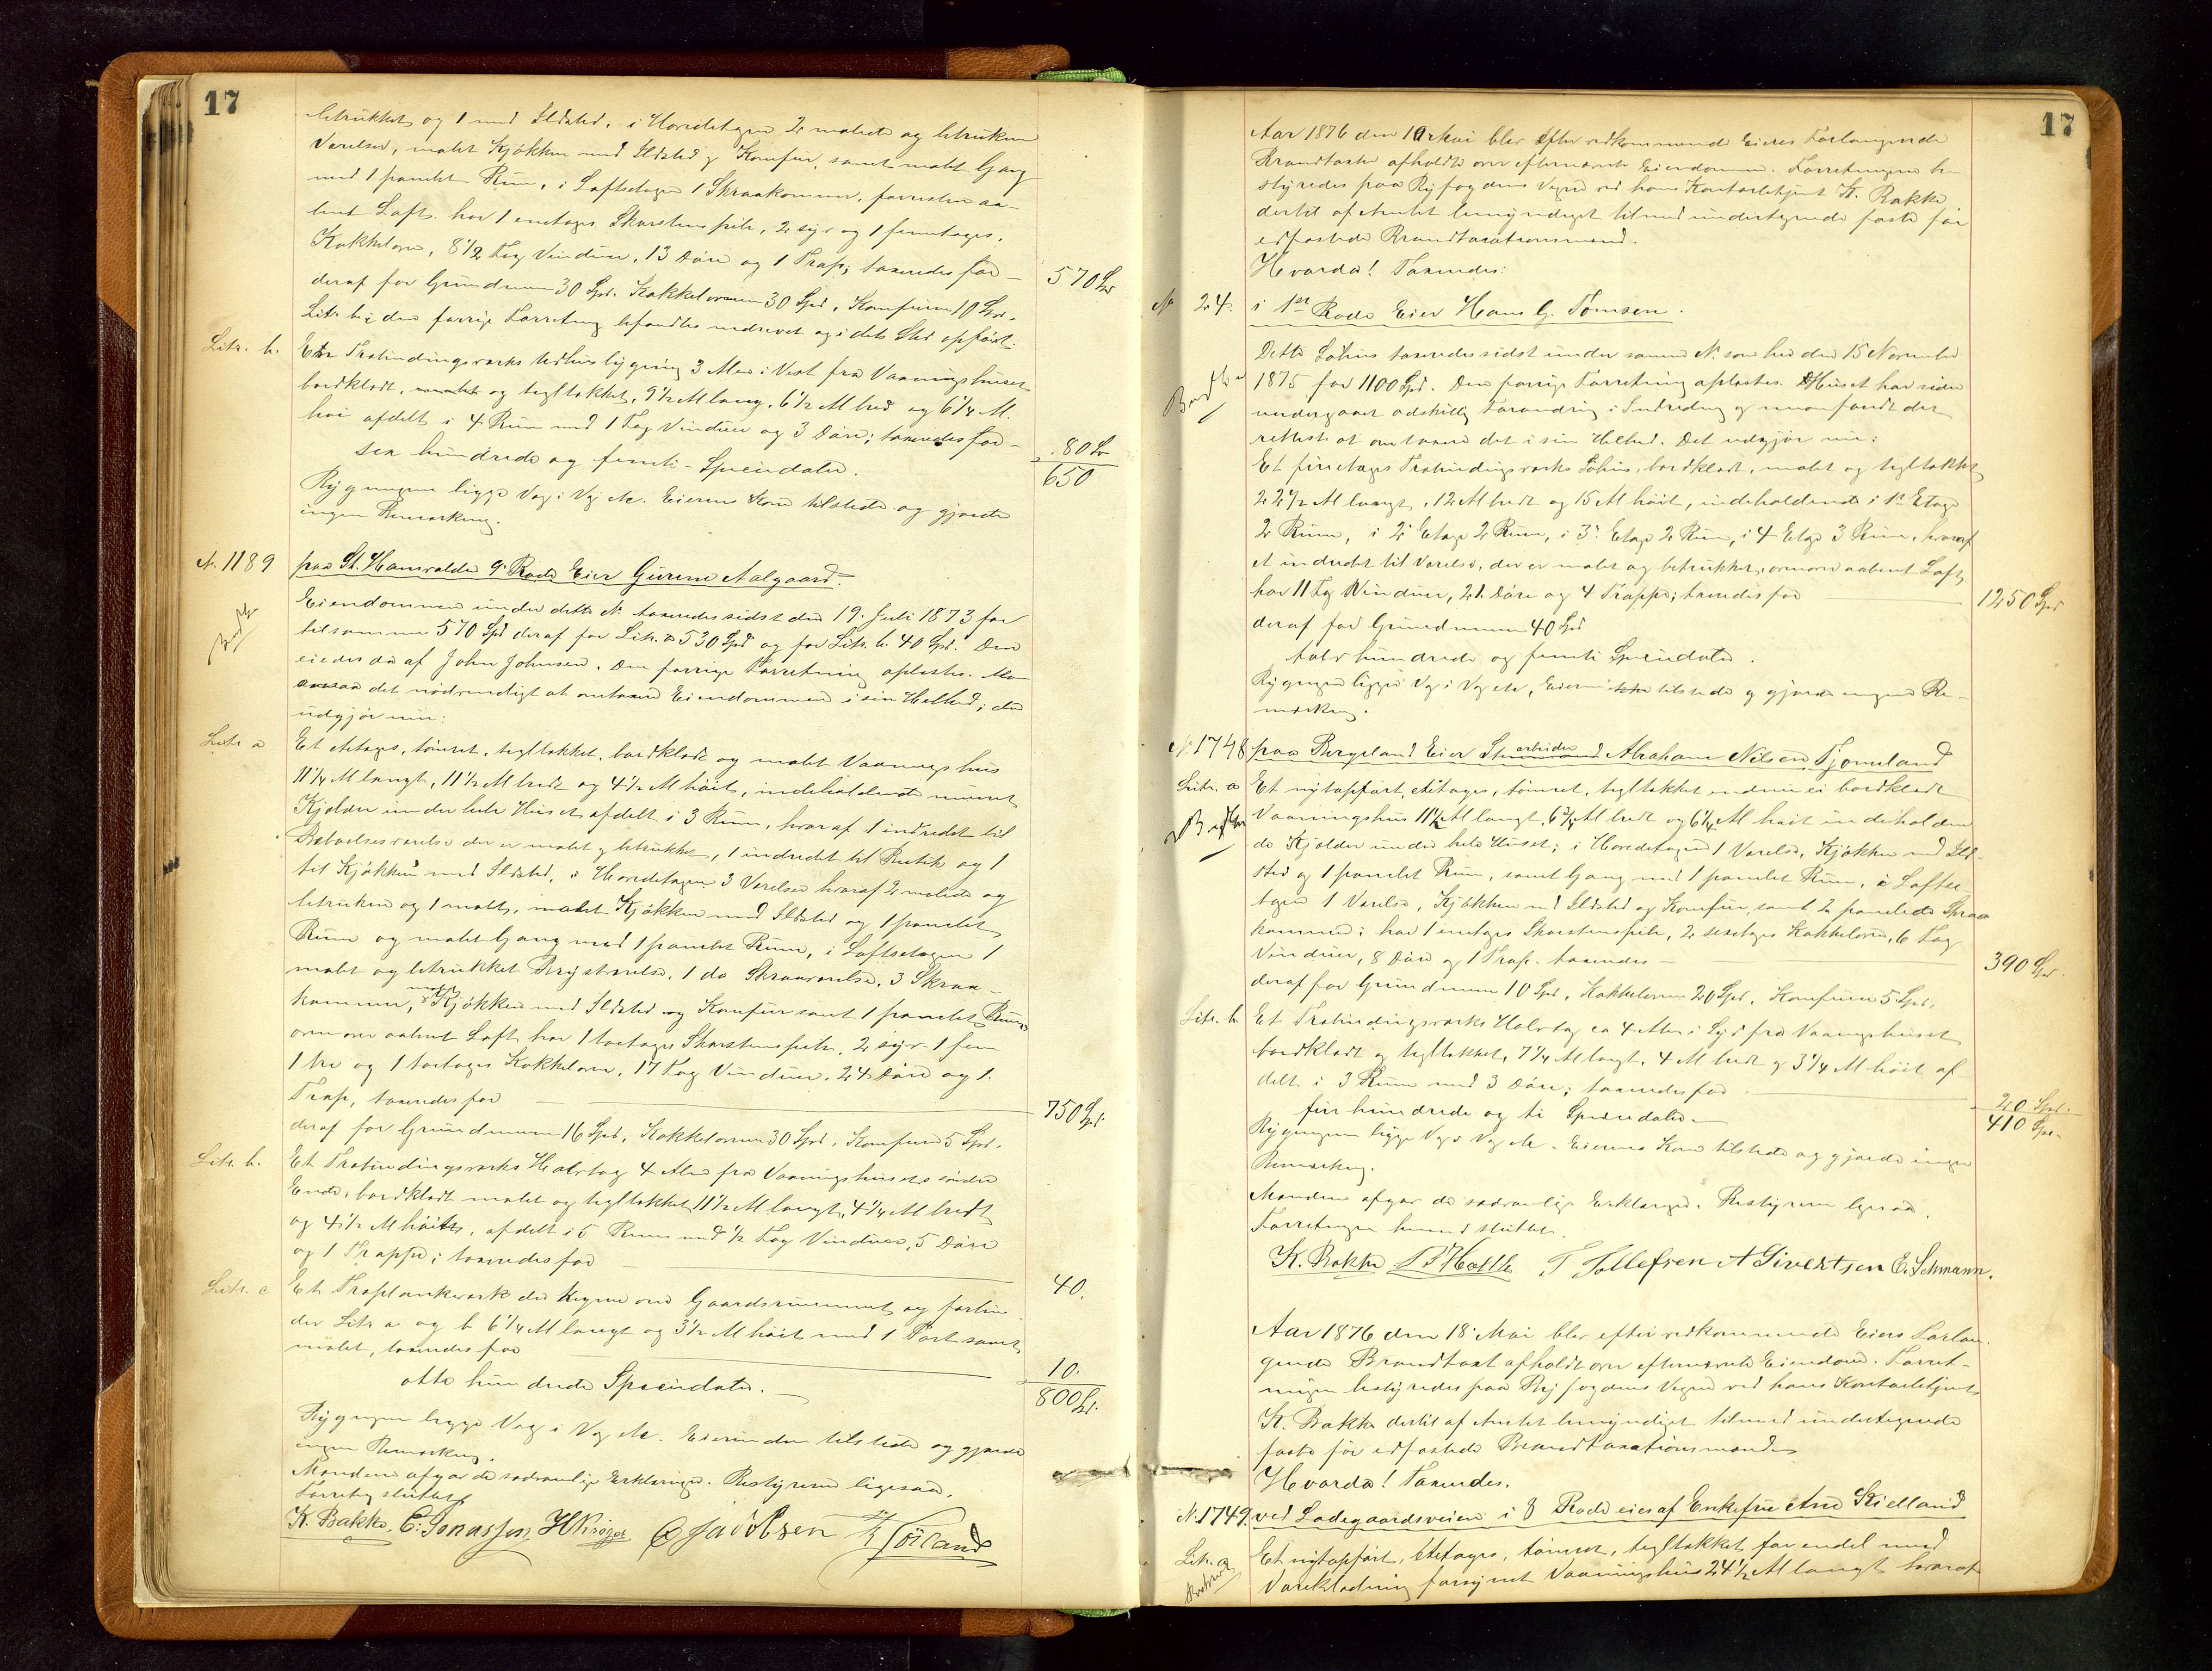 17
betrukket og 1 med Ildsted, i Hovedetagen 2 malede og betrukne
Værelser, malet Kjøkken med Ildsted og Komfur, samt malet Gang
med 1 panelet Rum, i Loftsetagen 1 Skraakammer, forresten aa-
bent Loft. har 1 enetages Skorstenspibe, 2 syv og 1 femetages
Kakkelovn, 8 1/2 Fag Vinduer, 13 Døre og 1 Trap; taxeredes for — 570 Spd
deraf for Grundmuren 30 Spd. Kakkelovnene 30 Spd, Komfuren 10 Spd.
Litr. b i den forrige Forretning befandtes nedrevet og i dets Sted opført:
Litr. b. Et Træbindingsværks Udhusbygning 3 Alen i Vest fra Vaaningshuset
bordklædt, malet og tegltækket, 9 1/2 Al lang, 6 1/2 Al bred og 6 1/4 Al.
høi afdelt i 4 Rum med 1 Fag Vinduer og 3 Døre; taxeredes for — 80 Spd
sex hundrede og femti Speciedaler. 650
Bygningen ligge Væg i Væg etc. Eierens Kone tilstede og gjorde
ingen Bemærkning.
N. 1189 paa St. Hansvolden 9. Rode Eier Gurine Aalgaard.
Eiendommen under dette N. taxeredes sidst den 19. Juli 1873 for
tilsammen 570 Spd deraf for Litr. a 530 Spd og for Litr. b. 40 Spd. Den
eiedes da af John Johnsen. Den forrige Forretning oplæstes. Man
ansaa det nødvendigt at omtaxere Eiendommen i sin Helhed; den
udgjør nu:
Litr. a Et etetages, tømret, tegltækket, bordklædt og malet Vaaningshus
11 1/4 Al langt, 11 1/2 Al bredt og 4 1/2 Al høit, indeholdende muret
Kjælder under hele Huset afdelt i 3 Rum, hvoraf 1 indredet til
Beboelsesværelse der er malet og betrukket, 1 indredet til Butik og 1
til Kjøkken med Ildsted, i Hovedetagen 3 Værelser hvoraf 2 malede og
betrukne og 1 malet, malet Kjøkken med Ildsted og 1 panelet
Rum og malet Gang med 1 panelet Rum, i Loftsetagen 1
malet og betrukket Brystværelse, 1 do Skraaværelse, 3 Skraa-
kammer, malet Kjøkken med Ildsted og Komfur samt 1 panelet Rum,
ovenover aabent Loft har 1 toetages Skorstenspibe, 2 syv 1 fem
1 tre og 1 toetages Kakkelovn, 17 Fag Vinduer, 24 Døre og 1
Trap, taxeredes for — 750 Spd.
deraf for Grundmuren 16 Spd, Kakkelovnene 30 Spd, Komfuren 5 Spd.
Litr. b. Et Træbindingsværks Halvtag 4 Alen fra Vaaningshusets søndre
Ende, bordklædt malet og tegltækket, 11 1/2 Al langt, 4 1/4 Al bredt
og 4 1/2 Al høit, afdelt i 5 Rum med 1/2 Fag Vinduer, 5 Døre
og 1 Trappe; taxeredes for — 40.
Litr. c Et Træplankværk der hegner om Gaardsrummet og forbin-
der Litr a og b 6 1/4 Al langt og 3 1/2 Al høit med 1 Port samt
malet, taxeredes for — 10.
otte hundrede Speciedaler. — 800 Spd.
Bygningen ligge Væg i Væg etc. Eierinden tilstede og gjorde
ingen Bemærkning.
Mændene afgav de sædvanlige Erklæringer. Bestyreren ligesaa.
Forretning sluttet
K. Bakke. C. Jonassen, H Krøger C Jacobsen Tørland
17
Aar 1876 den 10 Mai blev efter vedkommende Eieres Forlangende
Brandtaxter afholdte over efternævnte Eiendomme. Forretningen be-
styredes paa Byfogdens Vegne ved hans Kontorbetjent K. Bakke
dertil af Amtet bemyndiget tilmed undertegnede faste før
edfæstede Brandtaxationsmænd.
Hvorda! Taxeredes:
No 24. i 1ste Rode Eier Hans G. Tømsen.
Dette Søhus taxeredes sidst under samme N. som her den 15 November
1875 for 1100 Spd. Den forrige Forretning oplæstes. Huset har siden
undergaaet adskillig Forandring i Indredning og man fandt det
rettest at omtaxere det i sin Helhed. Det udgjør nu:
Et fireetages Træbindingsværks Søhus, bordklædt, malet og tegltækket
22 1/2 Al langt, 12 Al bredt og 15 Al høit, indeholdende i 1ste Etage
2 Rum, i 2. Etage 2 Rum, i 3. Etage 2 Rum, i 4 Etage 3 Rum, hvoraf
et indredet til Værelse, der er malet og betrukket, ovenover aabent Loft,
har 11 Fag Vinduer, 21 Døre og 4 Trapper; taxeredes for — 1250 Spd
deraf for Grundmuren 40 Spd
tolv hundrede og femti Speciedaler.
Bygningen ligge Væg i Væg etc, Eieren tilstede og gjorde ingen Be-
mærkning.
N. 1748 paa Bergeland Eier arbeider Abraham Nilsen Fjermeland
Litr. a Et nyt opført, etetages, tømret, tegltækket endnu ei bordklædt
Vaaningshus 11 1/2 Al langt, 6 3/4 Al bredt og 6 1/4 Al høit indeholden
de Kjælder under hele Huset; i Hovedetagen 1 Værelse, Kjøkken med Ild-
sted og 1 panelet Rum, samt Gang med 1 panelet Rum, i Loftse-
tagen 1 Værelse, Kjøkken med Ildsted og Komfur, samt 2 panelede Skraa
kammer; har 1 enetages Skorstenspibe, 2 sexetages Kakkelovne, 6 Fag
Vinduer, 8 Døre og 1 Trap. taxeredes — 390 Spd.
deraf for Grundmuren 10 Spd, Kakkelovnene 20 Spd, Komfuren 5 Spd.
Litr. b. Et Træbindingsværks Halvtag ca 4 Alen i Syd fra Vaaningshuset
bordklædt og tegltækket, 7 1/4 Al langt, 4 Al bredt og 3 1/4 Al høit af
delt i 3 Rum med 3 Døre; taxeredes for — 20 Spd.
fire hundrede og ti Speciedaler — 410 Spd.
Bygningen ligge Væg i Væg etc. Eierens Kone tilstede og gjorde ingen
Bemærkning.
Mændene afgav de sædvanlige Erklæringer. Bestyreren ligesaa.
Forretningen hermed sluttet.
K. Bakke T Tollefsen A Sivertsen E. Schmann.
Aar 1876 den 18. Mai blev efter vedkommende Eiers Forlan-
gende Brandtaxt afholdt over efternævnte Eiendom. Forret-
ningen bestyredes paa Byfogdens Vegne ved hans Kontorbetjent
K. Bakke dertil af Amtet bemyndiget tilmed undertegnede
faste før edfæstede Brandtaxationsmænd
Hvorda! Taxeredes.
N. 1749. ved Ladegaardsveien i 8 Rode eies af Enkefru Ane Kielland
Litr. a Et nyt opført, etetages, tømret, tegltækket for endel med
Vareklædning forsynet Vaaningshus 24 1/2 Al langt hvoraf